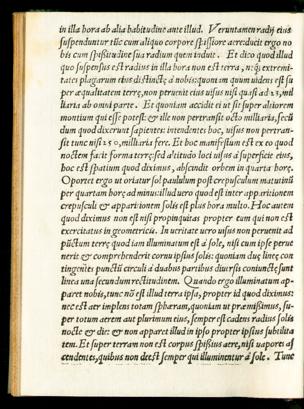 in illa hora ab alia habitudine ante illud. Veruntamen radij eius
suspenduntur tūc cum aliquo corpore spissiore aere ducit ergo no
bis cum spissitudine sua radium quem induit. Et dico quod illud
quo suspensus est radius in illa hora non est terra, neq; extremi-
tates plagarum eius distinctę à nobis: quoniam quum uidens est su
per æqualitatem terrę, non peruenit eius uisus nisi quasi ad 23, mil
liaria ab omni parte. Et quoniam accidit ei ut sit super altiorem
montium qui esse potest: & ille non pertransit octo milliaria, secū
dum quod dixerunt sapientes: intendentes hoc, uisus non pertran-
sit tunc nisi 250, milliaria fere. Et hoc manifestum est ex eo quod
noctem facit forma terrę: sed altitudo loci uisus à superficie eius,
hoc est spatium quod diximus, abscindit orbem in quarta horę.
Oportet ergo ut oriatur sol paulum post crepusculum matutinū
per quartam horę ad minus: illud uero quod est inter apparitionem
crepusculi & apparitionem solis est plus hora multo. Hoc autem
quod diximus non est nisi propinquitas propter eum qui non est
exercitatus in geometricis. In ueritate uero uisus non peruenit ad
pūctum terrę quod iam illuminatum est à sole, nisi cum ipse perue
nerit & comprehenderit cornu ipsius solis: quoniam duę lineę con
tingentes punctū circuli à duabus partibus diuersis coniunctę sunt
linea una secundum rectitudinem. Quando ergo illuminatum ap-
paret nobis, tunc nō est illud terra ipsa, propter id quod diximus:
nec est aer implens totam spheram, quoniam ut præmisimus, su-
per totum aerem aut plurimum eius, semper est cadens radius solis
nocte & die: & non apparet illud in ipso propter ipsius subtilita
tem. Et super terram non est corpus spissius aere, nisi uapores as
cendentes, quibus non deest semper qui illuminentur à sole. Tunc